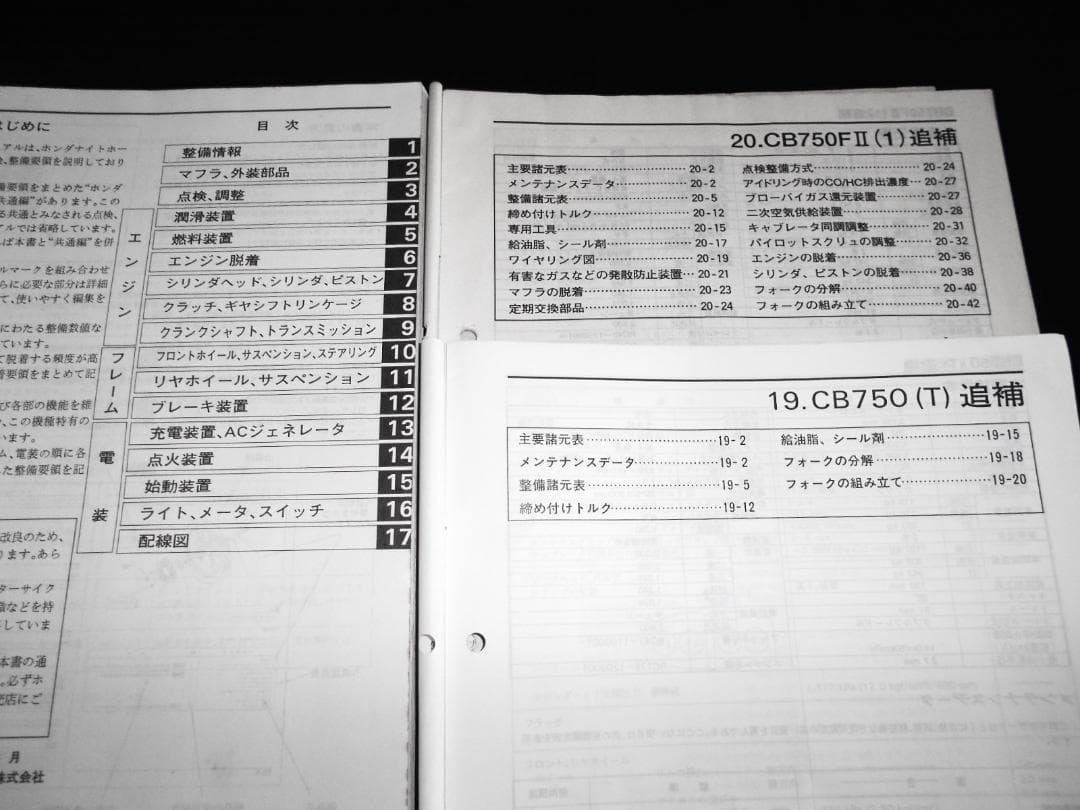 はじめに
アルは、ホンダナイトホー
、整備要領を説明しており
備要領をまとめた“ホンダ
共通編”があります。この
る共通とみなされる点検、
アルでは省略しています。
ば本書と“共通編”を併
ルマークを組み合わせ
らに必要な部分は詳細
て、使いやすく編集を
にわたる整備数値な
ています。
て脱着する頻度が高
着要領をまとめて記
び各部の機能を維
、この機種特有の
います。
ム、電装の順に各
た整備要領を記
改良のため、
ります。あら
ターサイク
識などを持
成していま
本書の通
。必ずホ
売店にご
月
株式会社
目 次
整備情報 1
マフラ、外装部品 2
点検、調整 3
エンジン
潤滑装置 4
燃料装置 5
エンジン脱着 6
シリンダヘッド、シリンダ、ピストン 7
クラッチ、ギヤシフトリンケージ 8
クランクシャフト、トランスミッション 9
フレーム
フロントホイール、サスペンション、ステアリング 10
リヤホイール、サスペンション 11
ブレーキ装置 12
電装
充電装置、ACジェネレータ 13
点火装置 14
始動装置 15
ライト、メータ、スイッチ 16
配線図 17
20.CB750FⅡ(1)追補
主要諸元表 20-2
メンテナンスデータ 20-2
整備諸元表 20-5
締め付けトルク 20-12
専用工具 20-15
給油脂、シール剤 20-17
ワイヤリング図 20-19
有害なガスなどの発散防止装置 20-21
マフラの脱着 20-23
定期交換部品 20-24
点検整備方式 20-24
アイドリング時のCO/HC排出濃度 20-27
ブローバイガス還元装置 20-27
二次空気供給装置 20-28
キャブレータ同調調整 20-31
パイロットスクリュの調整 20-32
エンジンの脱着 20-36
シリンダ、ピストンの脱着 20-38
フォークの分解 20-40
フォークの組み立て 20-42
19.CB750(T)追補
主要諸元表 19-2
メンテナンスデータ 19-2
整備諸元表 19-5
締め付けトルク 19-12
給油脂、シール剤 19-15
フォークの分解 19-18
フォークの組み立て 19-20